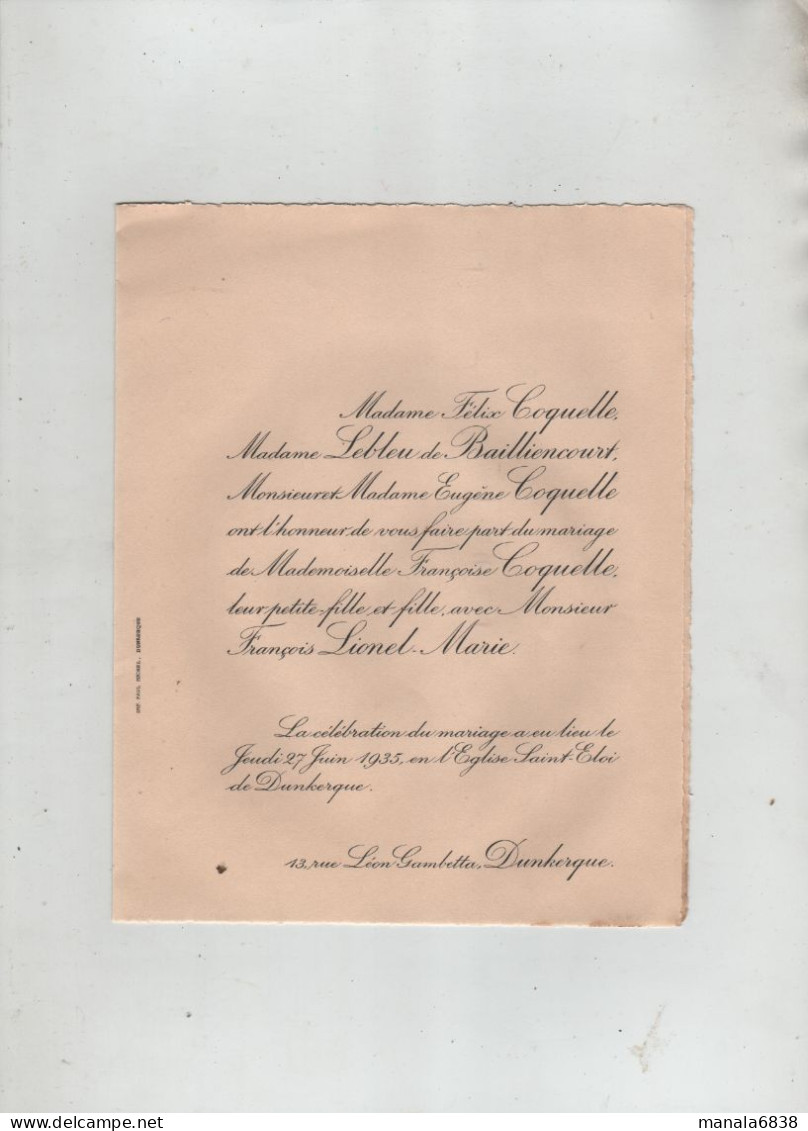 Madame Félix Coquelle,
Madame Lebleu de Bailliencourt,
Monsieur et Madame Eugène Coquelle
ont l'honneur de vous faire part du mariage
de Mademoiselle Françoise Coquelle,
leur petite-fille et fille, avec Monsieur
François Lionel-Marie.
La célébration du mariage a eu lieu le
Jeudi 27 Juin 1935, en l'Eglise Saint-Eloi
de Dunkerque.
13, rue Léon Gambetta, Dunkerque.
DUNKERQUE
manala6838